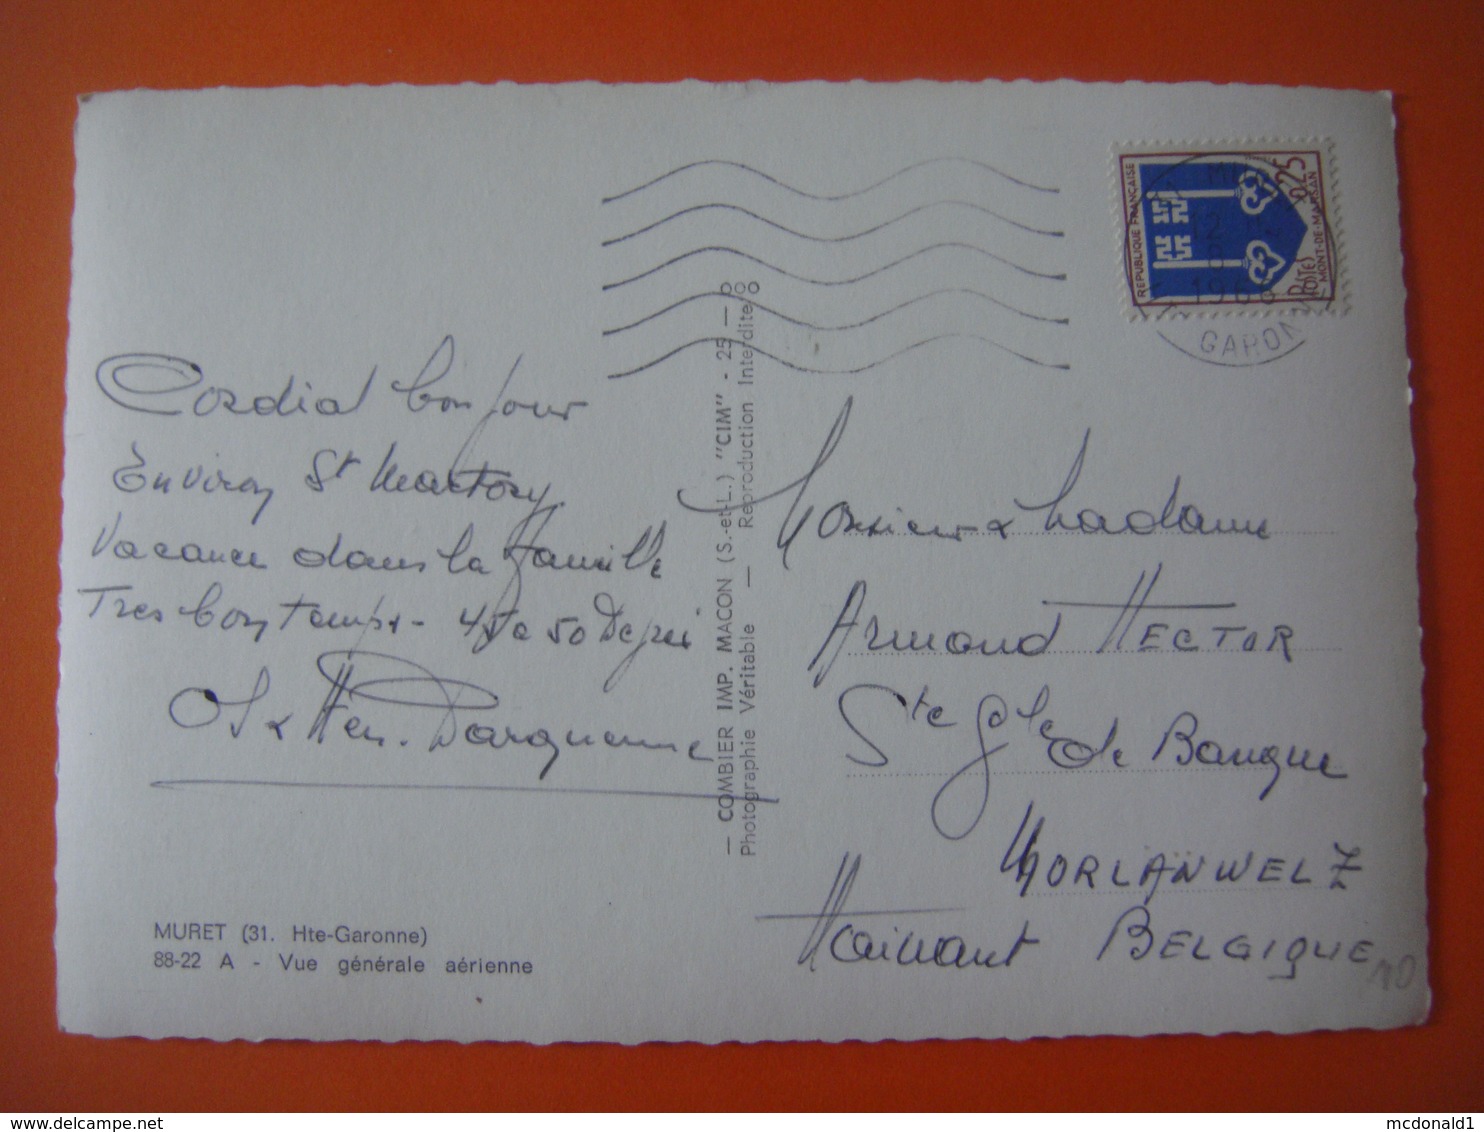 Cordial bonjour
Environ St Martory
Vacance dans la famille
Tres bon temps - 45 a 50 Degrés
MURET (31. Hte-Garonne)
88-22 A - Vue générale aérienne
— COMBIER IMP. MACON (S.-et-L.) "CIM" - 25 —
Photographie Véritable — Reproduction Interdite
REPUBLIQUE FRANÇAISE
0,25
POSTES
MONT-DE-MARSAN
12
1966
GARONNE
Monsieur & Madame
Armand HECTOR
Ste Gle de Banque
MORLANWELZ
Hainaut BELGIQUE
10
mcdonald1